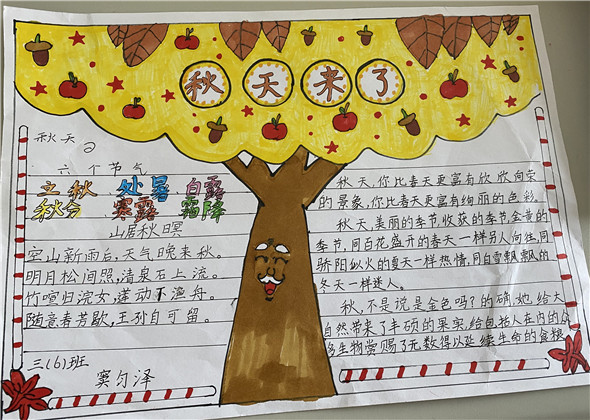 秋天来了
秋天
六个节气
立秋 处暑 白露
秋分 寒露 霜降
山居秋暝
空山新雨后,天气晚来秋。
明月松间照,清泉石上流。
竹喧归浣女,莲动下渔舟。
随意春芳歇,王孙自可留。
三(6)班
窦匀泽
秋天,你比春天更富有欣欣向荣
的景象,你比春天更富有绚丽的色彩。
秋天,美丽的季节收获的季节金黄的
季节,同百花盛开的春天一样另人向往,同
骄阳似火的夏天一样热情,同白雪飘飘的
冬天一样迷人。
秋,不是说是金色吗?的确,她给大
自然带来了丰硕的果实,给包括人在内的
多生物赏赐了无数得以延续生命的食粮